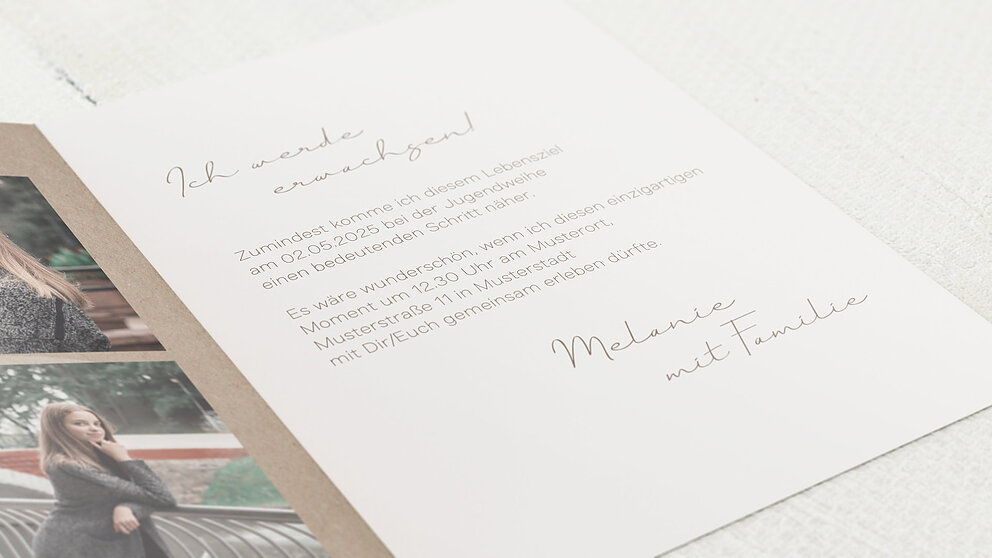 Ich werde
erwachsen!
Zumindest komme ich diesem Lebensziel
am 02.05.2025 bei der Jugendweihe
einen bedeutenden Schritt näher.
Es wäre wunderschön, wenn ich diesen einzigartigen
Moment um 12.30 Uhr am Musterort,
Musterstraße 11 in Musterstadt
mit Dir/Euch gemeinsam erleben dürfte.
Melanie
mit Familie